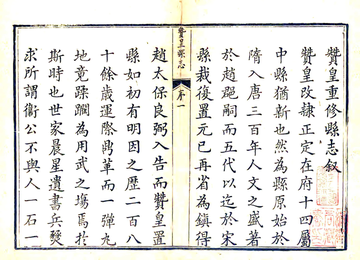 贊皇重修縣志敘
贊皇改隸正定在府十四屬
中縣猶新也然為縣原始於
隋入唐三百年人文之盛著
於趙郡嗣而五代以迄於宋
縣裁復置元已再省為鎮得
贊皇縣志
序一
趙太保良弼入告而贊皇置
縣如初有明因之歷二百八
十餘歲運際鼎革而一彈丸
地竟蹂躪為用武之場焉於
斯時也世家晨星遺書兵燹
求所謂衛公不與人一石一